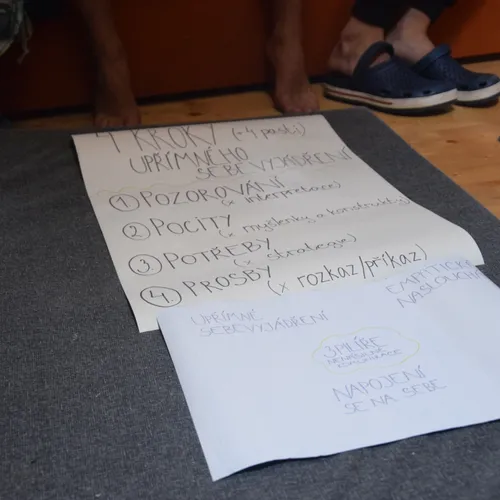 4 KROKY (+4 pasti)
UPŘÍMNÉHO
SEBEVYJÁDŘENÍ
1. POZOROVÁNÍ
(x interpretace)
2. POCITY
(x myšlenky a konstrukty)
3. POTŘEBY
(x strategie)
4. PROSBY
(x rozkaz/příkaz)
UPŘÍMNÉ
SEBEVYJÁDŘENÍ
EMPATICKÉ
NASLOUCHÁNÍ
3 MÍŘE
NENÁSILNÉ
KOMUNIKACE
NAPOJENÍ
SE NA SEBE